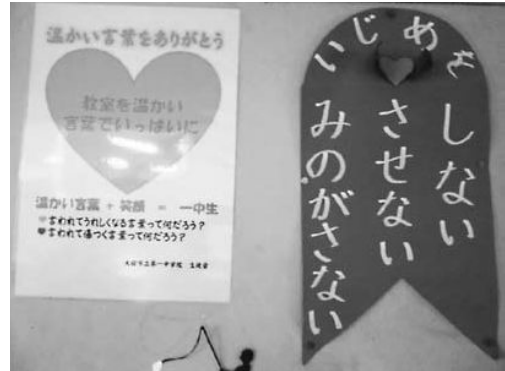 温かい言葉をありがとう
教室を温かい
言葉でいっぱいに
温かい言葉 + 笑顔 = 一中生
♥言われてうれしくなる言葉って何だろう?
♥言われて傷つく言葉って何だろう?
いじめを
しない
させない
みのがさない